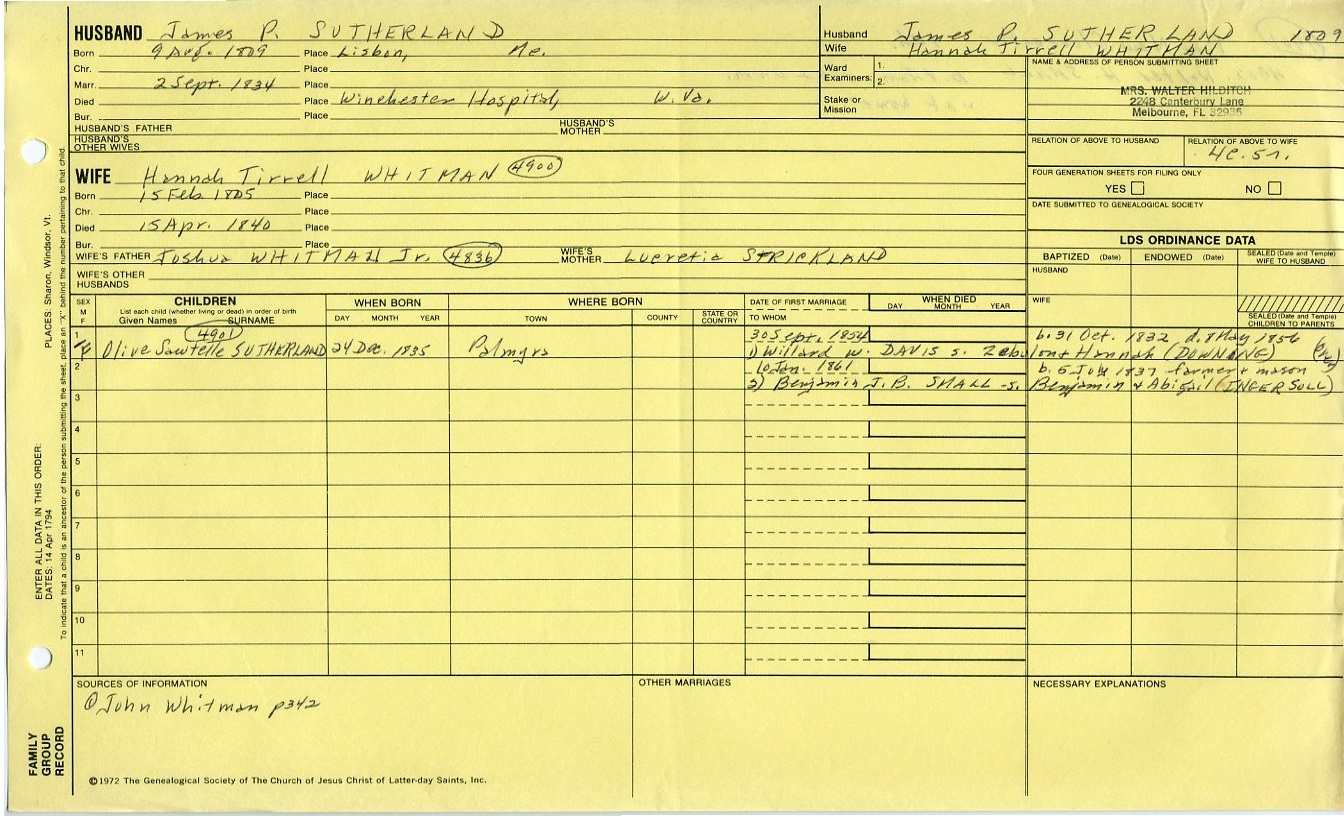 HUSBAND James P. SUTHERLAND
Born 9 Aug. 1809 Place Lisbon, Me.
Chr. Place
Marr. 2 Sept. 1834 Place
Died Place Winchester Hospital, W. Va.
Bur. Place
HUSBAND'S FATHER HUSBAND'S MOTHER
HUSBAND'S OTHER WIVES
Husband James P. SUTHERLAND 1809
Wife Hannah Tirrell WHITMAN
Ward Examiners: 1.
2.
Stake or Mission
NAME & ADDRESS OF PERSON SUBMITTING SHEET
MRS. WALTER HILDITCH
2248 Canterbury Lane
Melbourne, FL 32935
RELATION OF ABOVE TO HUSBAND RELATION OF ABOVE TO WIFE
4c.5r.
FOUR GENERATION SHEETS FOR FILING ONLY
YES NO
DATE SUBMITTED TO GENEALOGICAL SOCIETY
WIFE Hannah Tirrell WHITMAN 4900
Born 15 Feb. 1805 Place
Chr. Place
Died 15 Apr. 1840 Place
Bur. Place
WIFE'S FATHER Joshua WHITMAN Jr. 4836 WIFE'S MOTHER Lucretia STRICKLAND
WIFE'S OTHER HUSBANDS
LDS ORDINANCE DATA
BAPTIZED (Date) ENDOWED (Date) SEALED (Date and Temple) WIFE TO HUSBAND
HUSBAND
WIFE
SEALED (Date and Temple) CHILDREN TO PARENTS
SEX M F
CHILDREN
List each child (whether living or dead) in order of birth
Given Names SURNAME
WHEN BORN
DAY MONTH YEAR
WHERE BORN
TOWN COUNTY STATE OR COUNTRY
DATE OF FIRST MARRIAGE
TO WHOM
WHEN DIED
DAY MONTH YEAR
4901
30 Sept. 1854 b. 31 Oct. 1832 d. 8 May 1856
1 F Olive Sawtelle SUTHERLAND 24 Dec. 1835 Palmyra 1) Willard W. DAVIS s. Zebulon + Hannah (DOWNING)
2 10 Jan. 1861 b. 5 July 1837 farmer + mason
2) Benjamin J.B. SMALL s. Benjamin + Abigail (INGERSULL)
3
4
5
6
7
8
9
10
11
SOURCES OF INFORMATION
① John Whitman p342
OTHER MARRIAGES
NECESSARY EXPLANATIONS
©1972 The Genealogical Society of The Church of Jesus Christ of Latter-day Saints, Inc.
FAMILY GROUP RECORD
ENTER ALL DATA IN THIS ORDER:
DATES: 14 Apr 1794
PLACES: Sharon, Windsor, Vt.
To indicate that a child is an ancestor of the person submitting the sheet, place an "X" behind the number pertaining to that child.